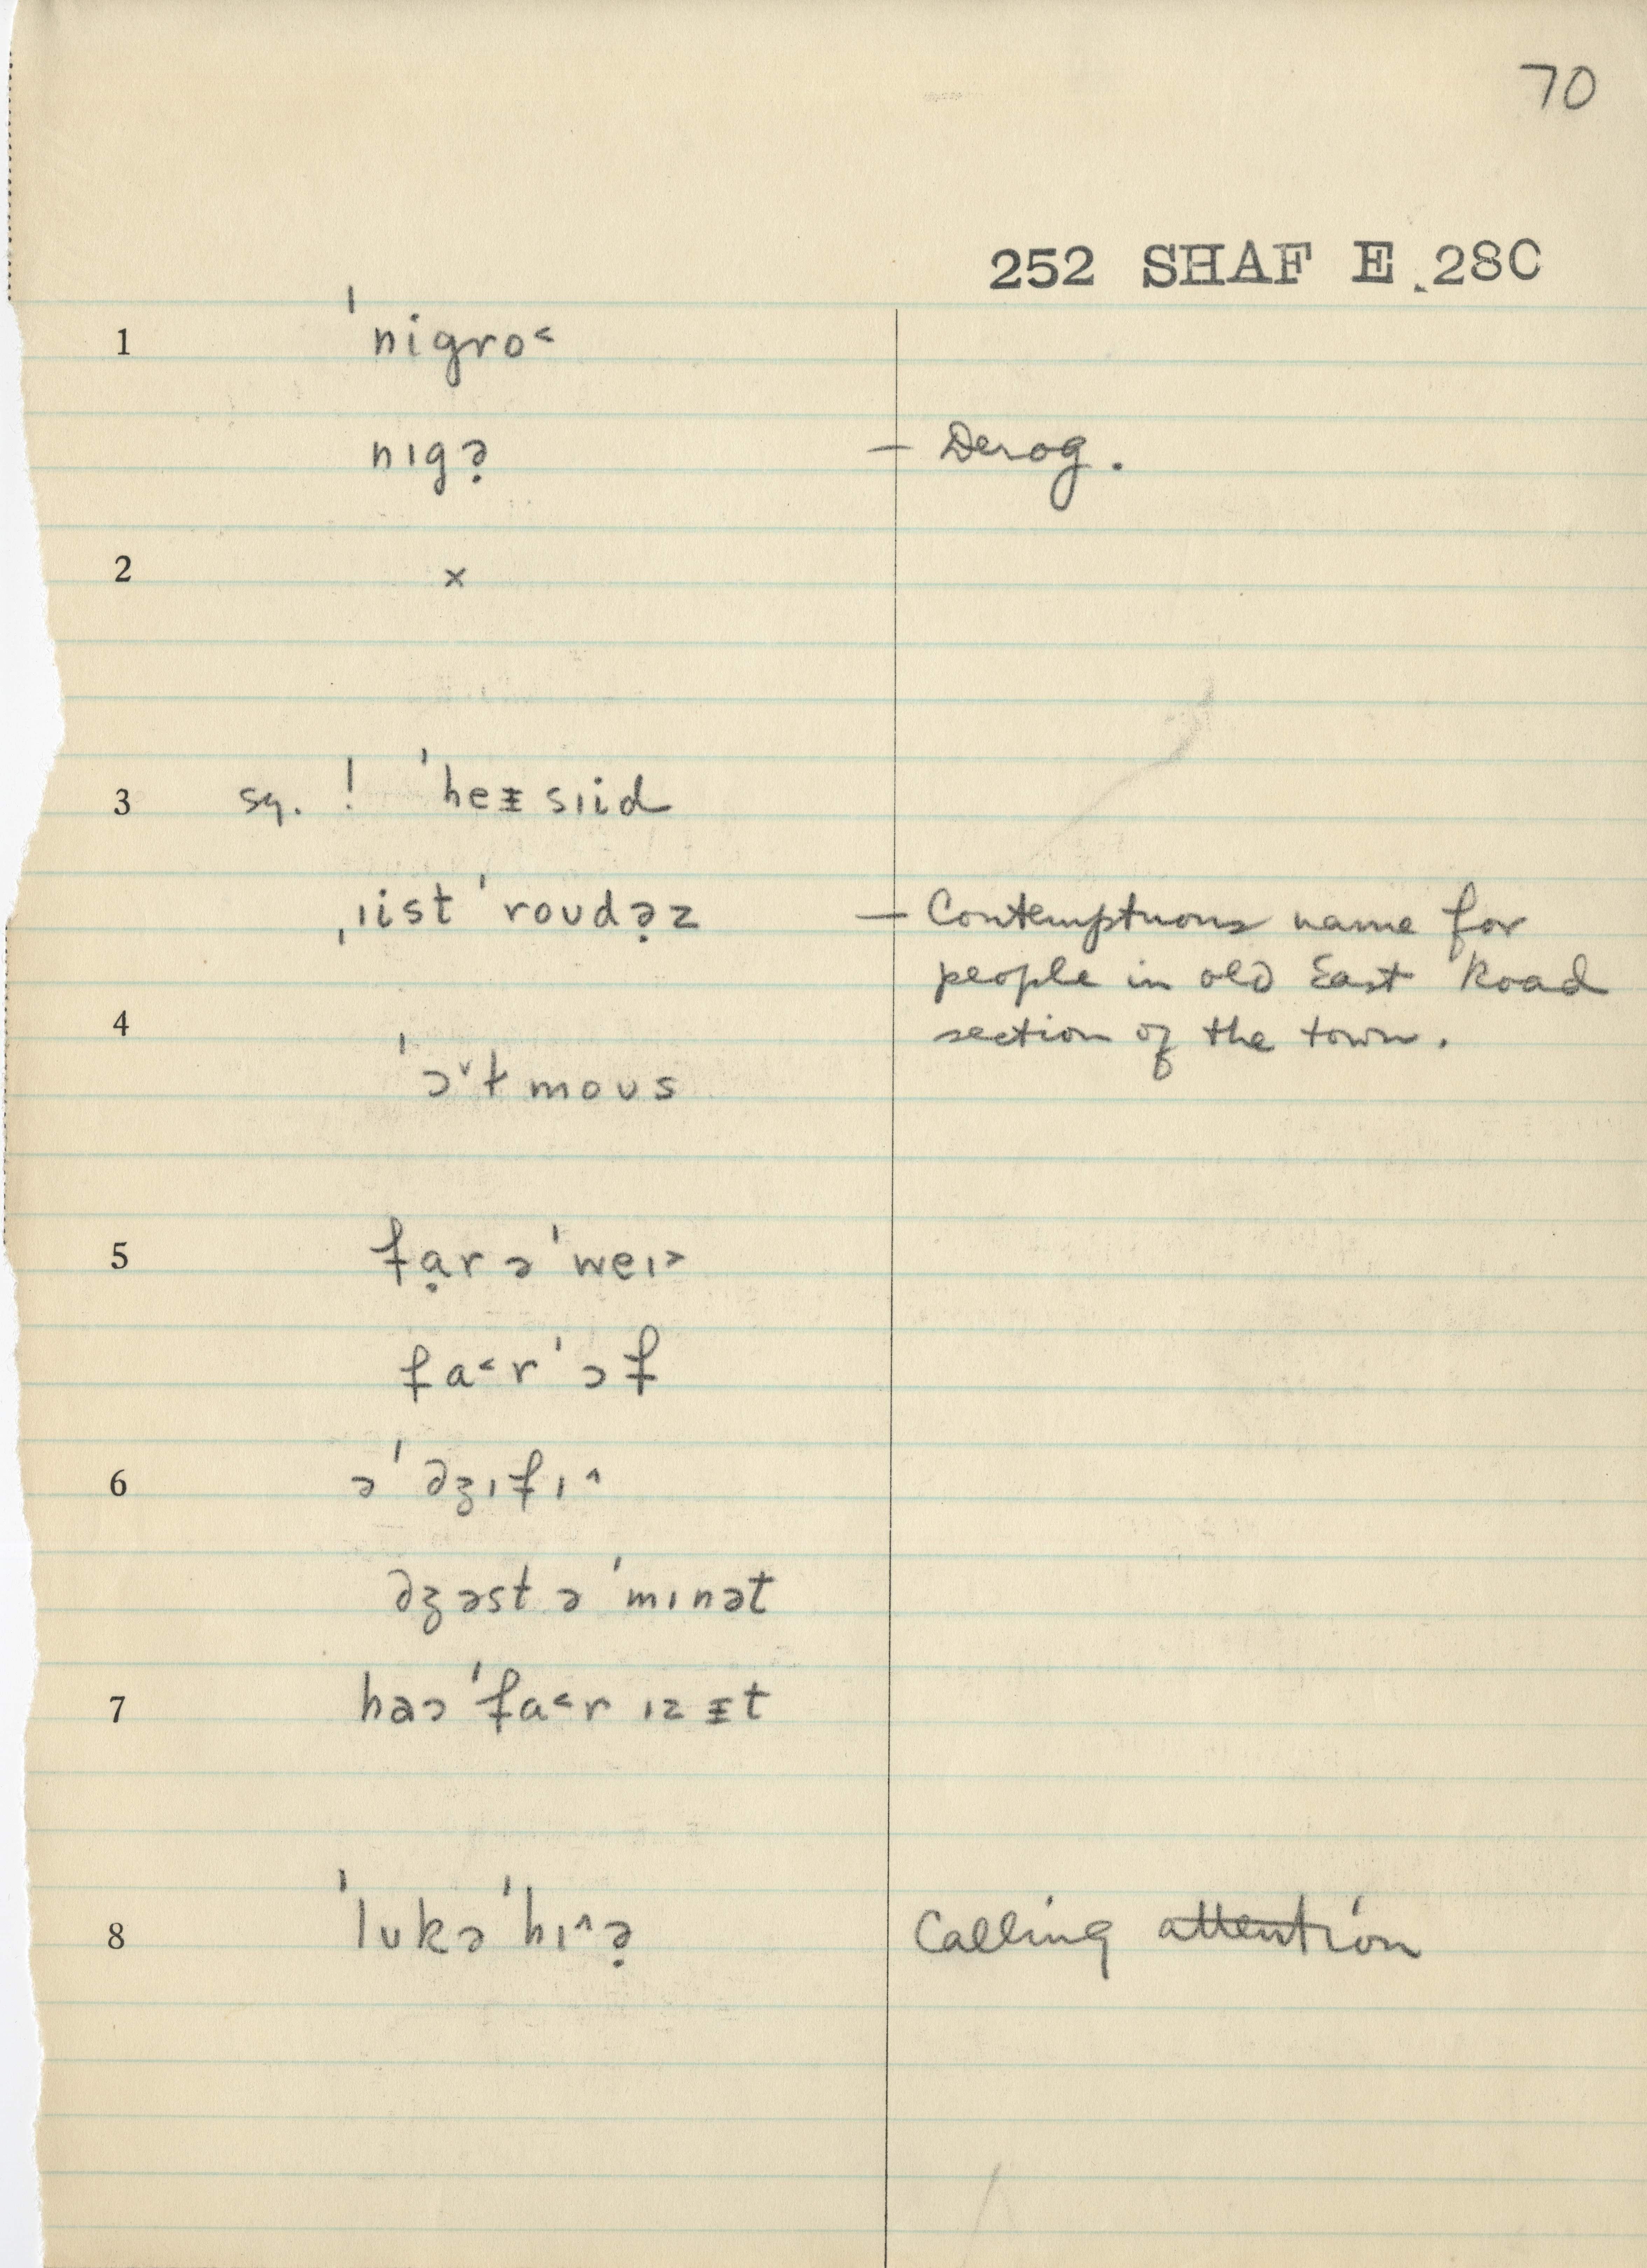 70
252 SHAF E 28C
1 ˈnigro˂
nɪgə̣ — Derog.
2 x
3 sq. ! ˈheᵻsɪid
ˌɪist ˈroʊdə̣z — Contemptuous name for
people in old East Road
4 section of the town.
ˈɔ˅tmoʊs
5 fạr əˈweɪ˃
fa˂r ˈɔf
6 əˈdʒɪfɪ˄
dʒəst ə ˈmɪnət
7 haɔ ˈfa˂r ɪz ᵻt
8 ˈlʊkə ˈhɪ˄ə̣ Calling attention